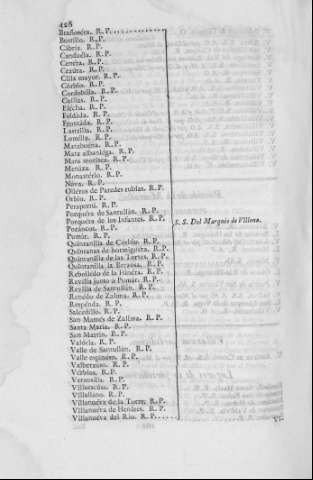 428
Brañosera. R. P.
Bustillo. R. P.
Cábria. R. P.
Canduela. R. P.
Cenera. R. P.
Cezura. R. P.
Cilla mayor. R. P.
Corbio. R. P.
Cordobilla. R. P.
Cuillas. R. P.
Elecha. R. P.
Foldada. R. P.
Frontada. R. P.
Lastrilla. R. P.
Lomilla. R. P.
Matabuena. R. P.
Mata albaniega. R. P.
Mata morisca. R. P.
Menaza. R. P.
Monasterio. R. P.
Nava. R. P.
Olléros de Paredes rubias. R. P.
Orbio. R. P.
Perapertú. R. P.
Porquera de Santullán. R. P.
Porquera de los Infantes. R. P.
S. S. Del Marqués de Villena.
Pozáncos. R. P.
Pumár. R. P.
Quintanilla de Corbio. R. P.
Quintanas de hormiguera. R. P.
Quintanilla de las Torres. R. P.
Quintanilla la Berzosa. R. P.
Rebolledo de la Hinéra. R. P.
Revilla junto a Pumár. R. P.
Revilla de Santullán. R. P.
Renedo de Zalima. R. P.
Respenda. R. P.
Salcedillo. R. P.
San Mamés de Zalima. R. P.
Santa María. R. P.
San Martin. R. P.
Valoria. R. P.
Valle de Santullán. R. P.
Valle espinoso. R. P.
Valberzoso. R. P.
Verbios. R. P.
Verzosilla. R. P.
Villabracino. R. P.
Villallano. R. P.
Villanuéva de la Torre. R. P.
Villanuéva de Henáres. R. P.
Villanuéva del Rio. R. P.